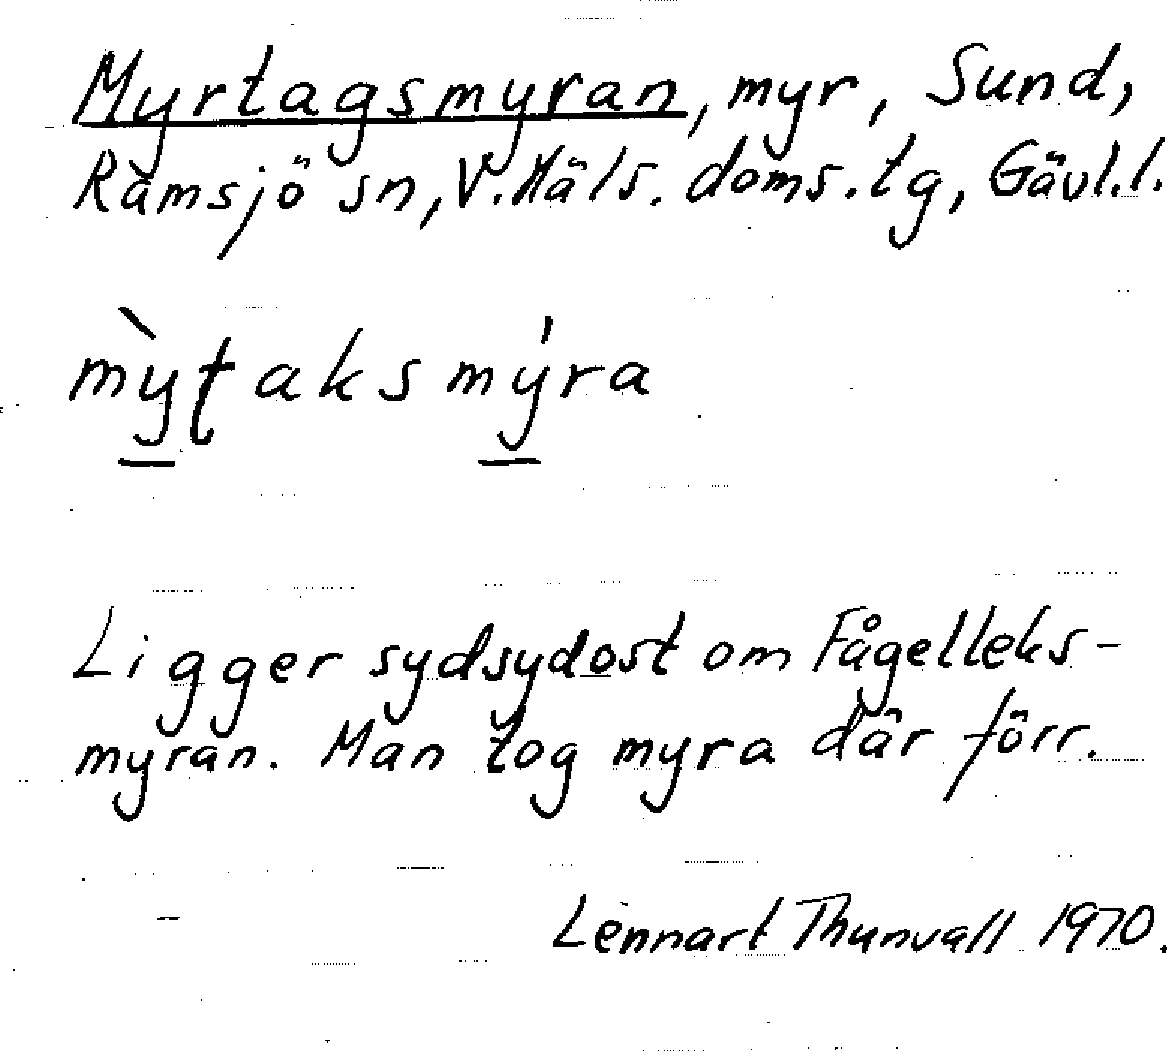 Myrtagsmyran, myr, Sund,
Ramsjö sn, V. Häls. doms. tg, Gävl. l.
mỳʈaksmýra
Ligger sydsydost om Fågelleks-
myran. Man tog myra där förr.
Lennart Thunvall 1970.